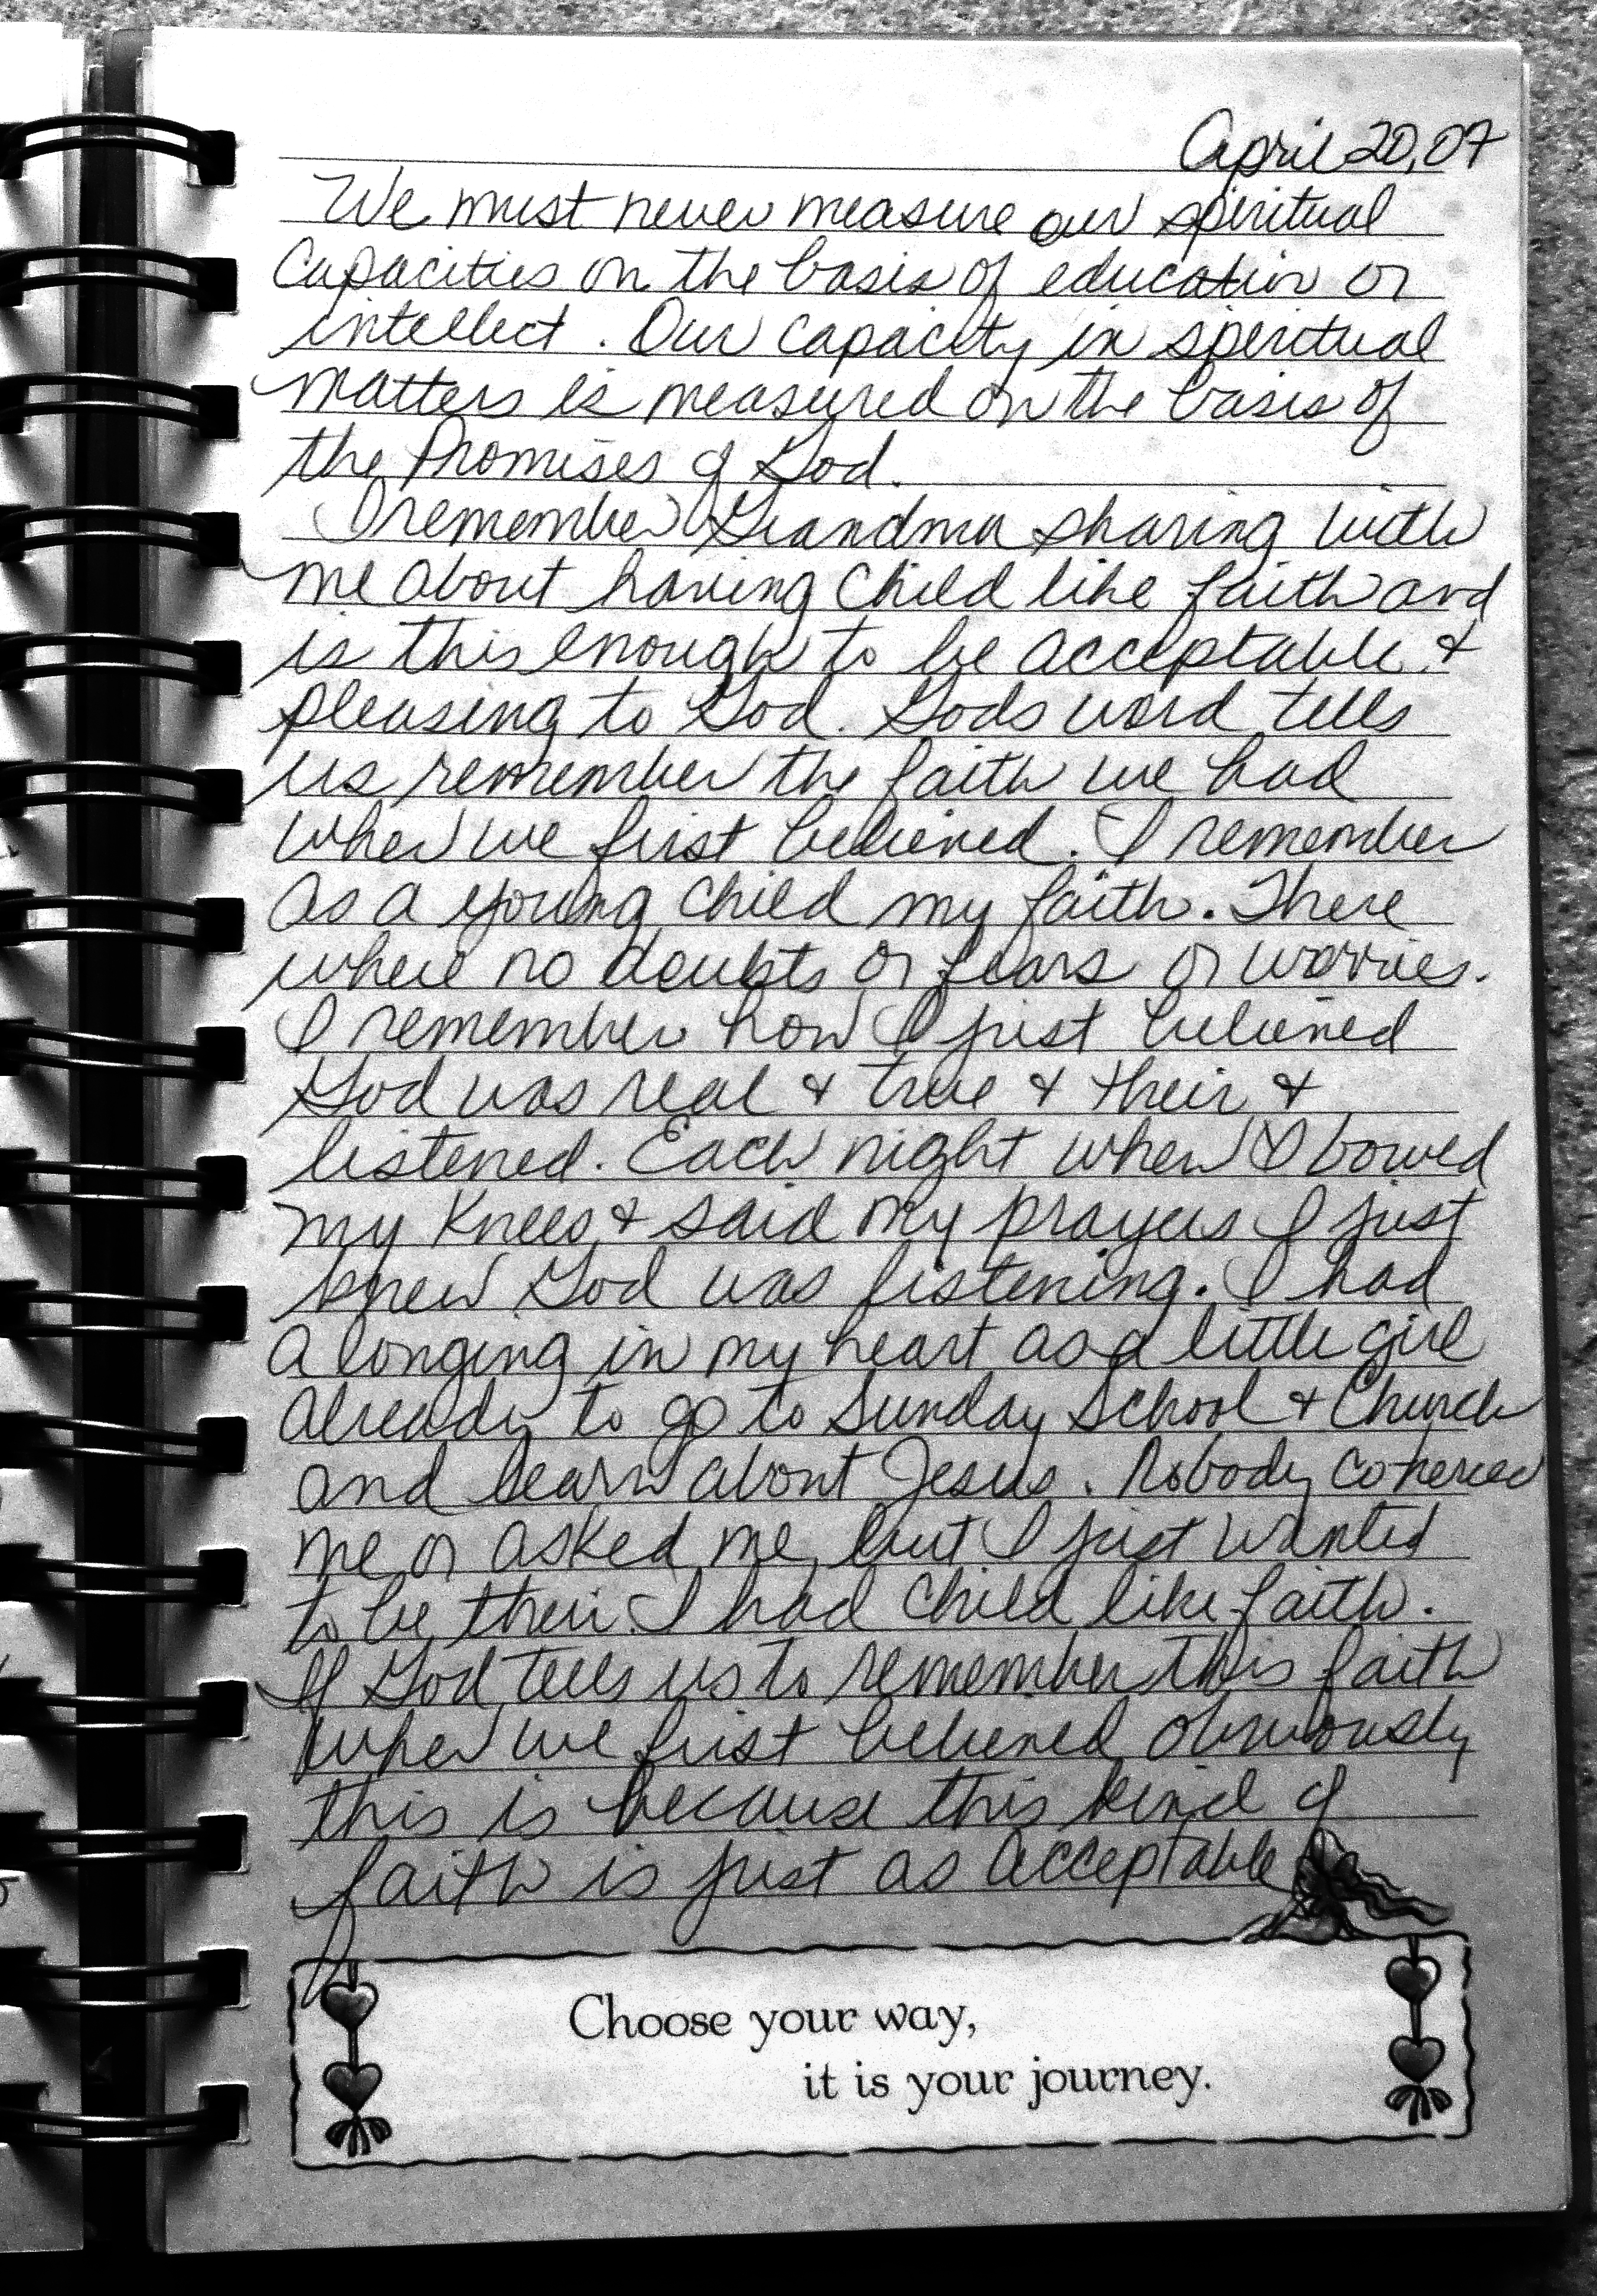 April 20, 07
We must never measure our spiritual
Capacities on the basis of education or
intellect. Our capacity in spiritual
matters is measured on the basis of
the Promises of God.
I remember Grandma sharing with
me about having Child like faith and
is this enough to be acceptable &
pleasing to God. Gods word tells
us remember the faith we had
when we first believed. I remember
as a young child my faith. There
where no doubts or fears or worries.
I remember how I just believed
God was real & true & their &
listened. Each night when I bowed
my knees & said my prayers I just
knew God was listening. I had
a longing in my heart as a little girl
already to go to Sunday School & Church
and learn about Jesus. Nobody coherced
me or asked me, but I just wanted
to be their. I had child like faith.
If God tells us to remember this faith
when we first believed obviously
this is because this kind of
faith is just as acceptable
Choose your way,
it is your journey.